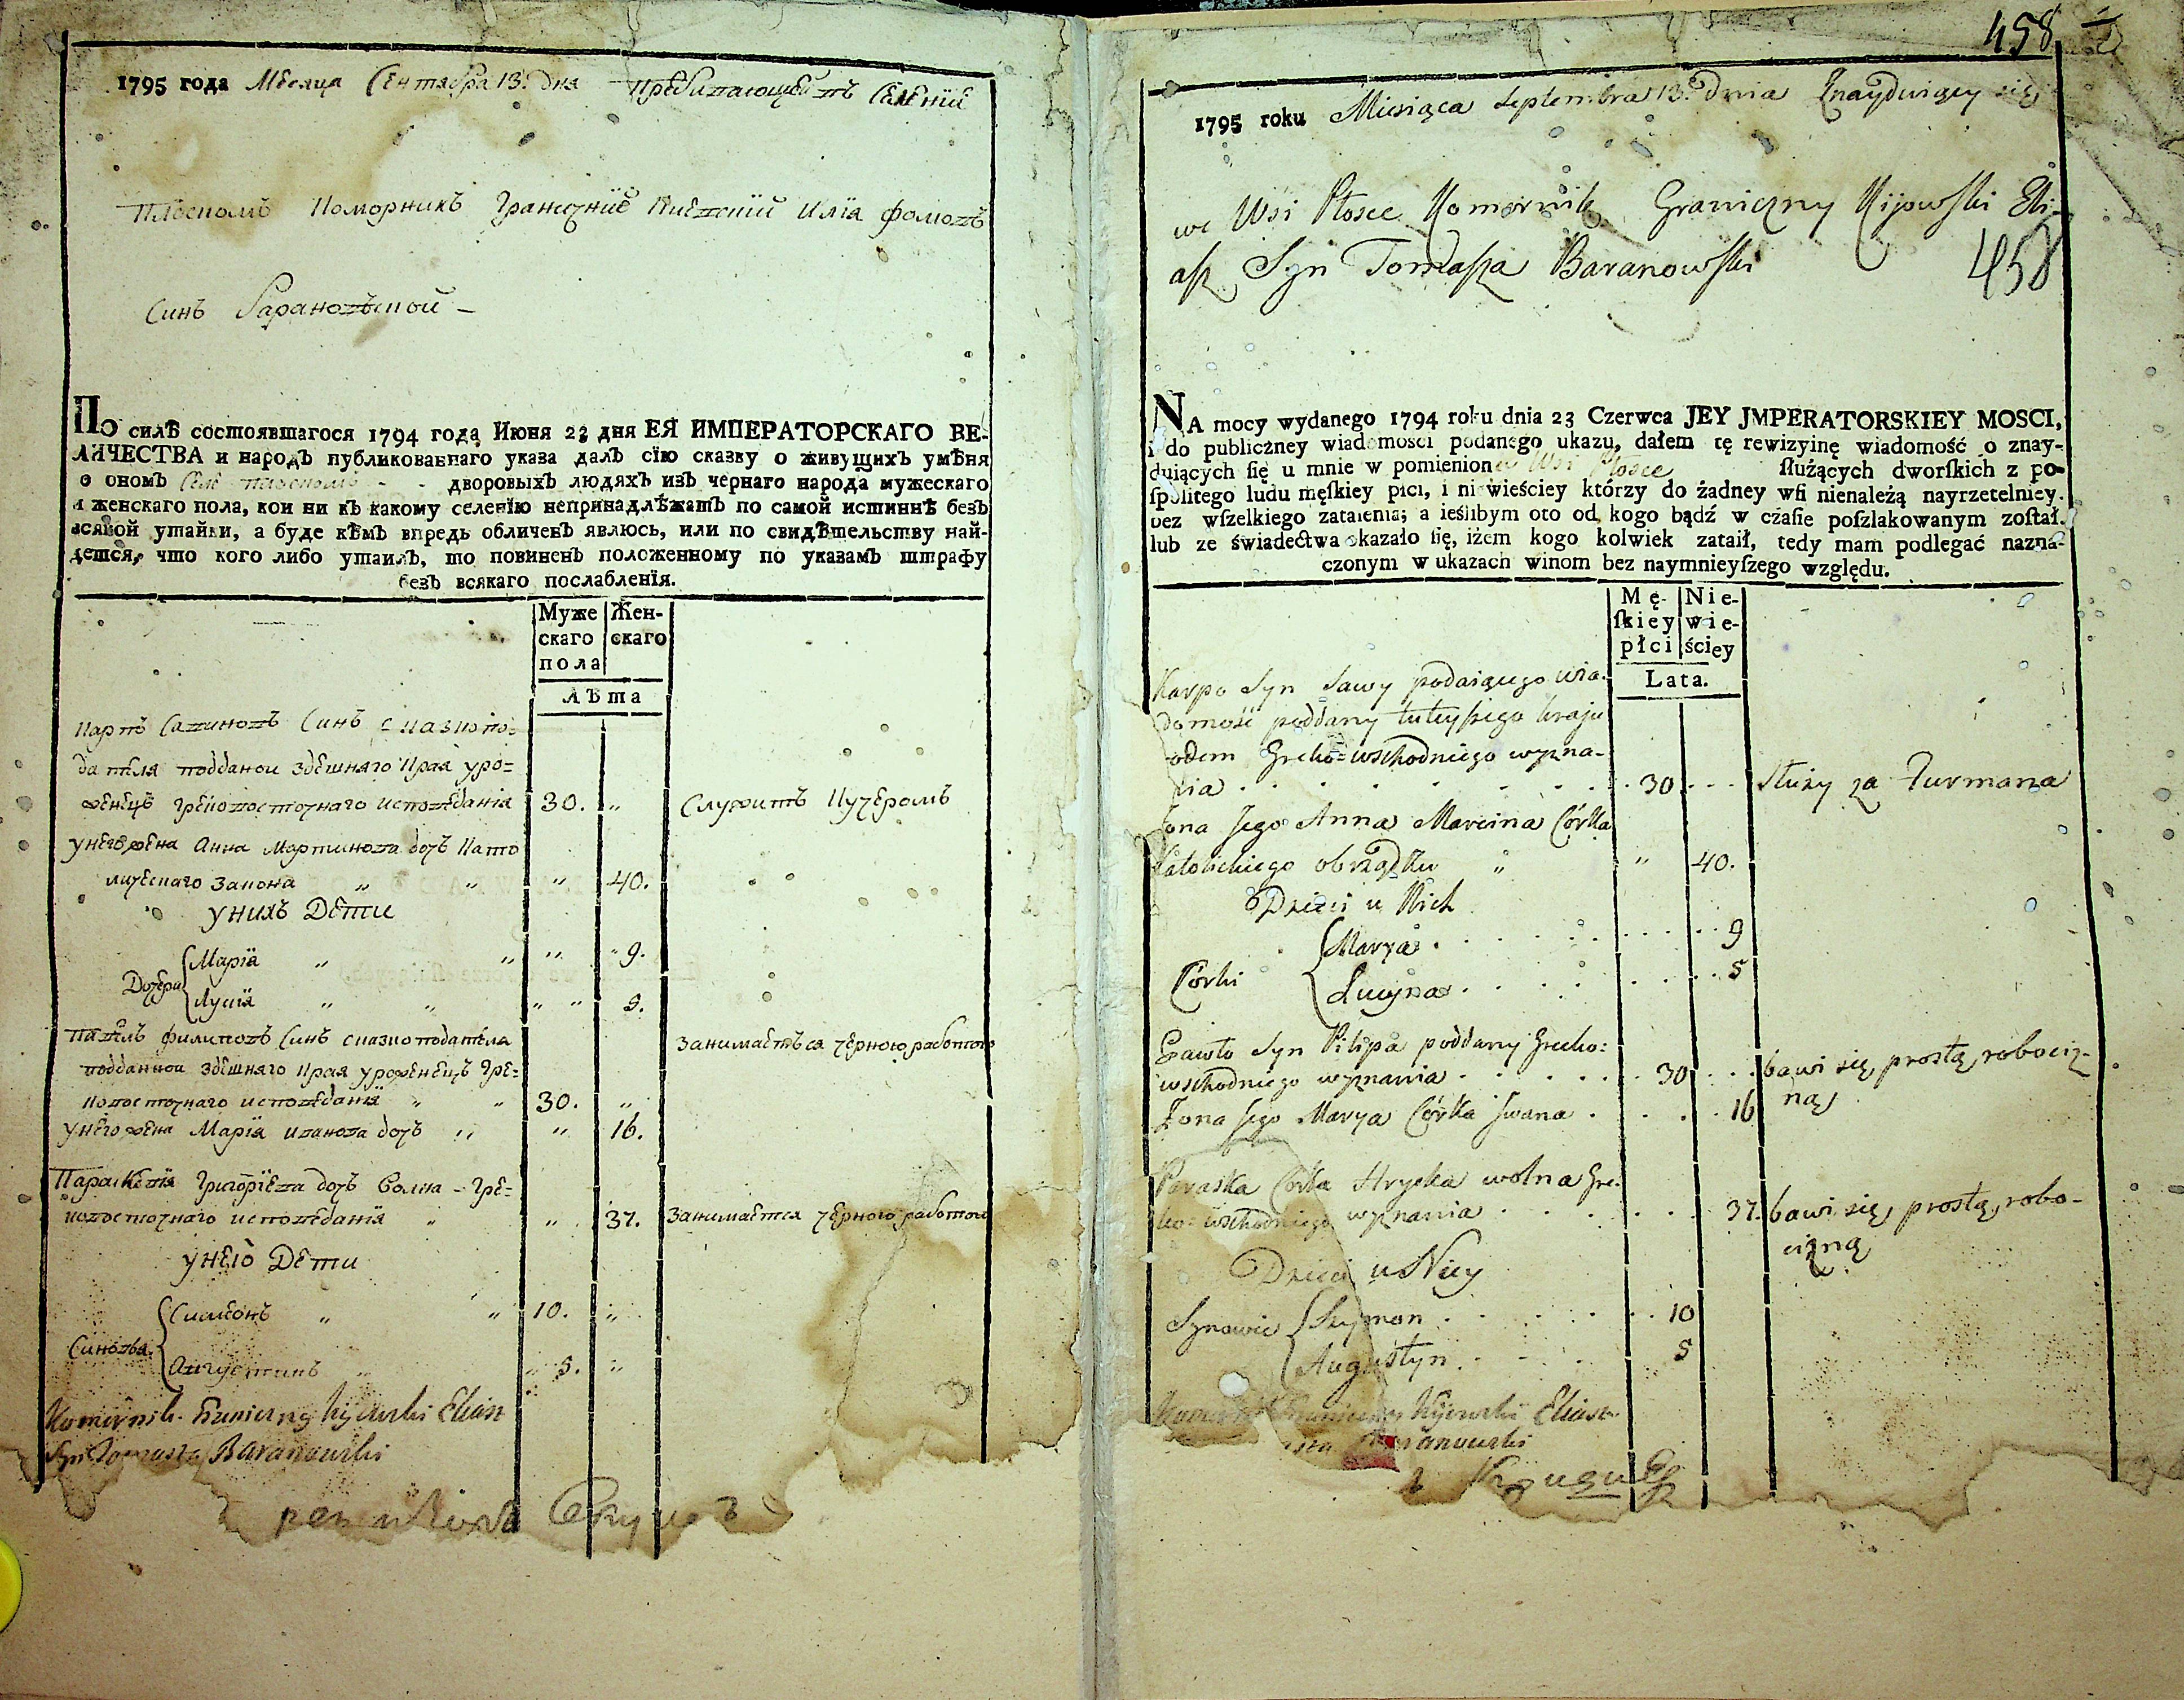 1795 года Месяца Сентября 13. Дня Пребивающей въ Селении
Плоском Коморникъ Граничний Киевский Илїя Фомовъ
Синъ Барановской –
ПО силѣ состоявшагося 1794 года Июня 23 дня ЕЯ ИМПЕРАТОРСКАГО ВЕ-
ЛИЧЕСТВА и народъ публикованнаго указа далъ сїю сказку о живущихъ умѣня
о ономъ Селе Плоском - - дворовыхъ людяхъ изъ чернаго народа мужескаго
и женскаго пола, кои ни къ какому селенїю непринадлѣжатъ по самой истиннѣ безъ
всякой утайки, а буде кѣмъ впредь обличенъ явлюсь, или по свидѣтельству най-
дется, что кого либо утаилъ, то повиненъ положенному по указамъ штрафу
безъ всякаго послабленїя.
Муже Жен-
скаго скаго
пола
Лѣта
Карпъ Савиновъ Синъ сказкопо=
дателя подданой здешняго Края уро=
женецъ Грековосточнаго исповеданїя 30. „ Служитъ Кучеромъ
унего жена Анна Мартинова дочъ Като
лическаго Закона „ „ „ 40.
уНихъ Дети
Дочери
Марїя „ „ „ 9.
Луцїя „ „ „ „ 5.
Павелъ Филиповъ Синъ сказкоподателя Занимается черною работою
подданной здешняго Края уроженецъ Гре=
ковосточнаго исповеданїя „ „ 30. „
унего жена Марїя Иванова дочъ „ „ 16.
Параскевия Григорїева дочъ Волна – Гре=
ковосточнаго исповеданїя „ „ 37. Занимается черною работою
уНеїо Дети
Синовья
Симеонъ „ „ 10. „
Августинъ „ „ 5. „
Komornik Graniczny Kijowski Eliasz
Syn Tomasza Baranowski
458
1795 roku Miesiąca Septembra 13. Dnia Znayduiący się
we Wsi Płosce Komornik Graniczny Kijowski Eli-
asz Syn Tomasza Baranowski
458
NA mocy wydanego 1794 roku dnia 23 Czerwca JEY JMPERATORSKIEY MOSCI,
i do publiczney wiadomosci podanego ukazu, dałem tę rewizyinę wiadomość o znay-
duiących ſię u mnie w pomienioney Wsi Płosce ſłużących dworſkich z po-
ſpolitego ludu męſkiey płci, i niewieściey którzy do żadney wſi nienależą nayrzetelniey.
bez wſzelkiego zataienia; a ieślibym oto od kogo bądź w czaſie poſzlakowanym zoſtał.
lub ze świadectwa okazało ſię, iżem kogo kolwiek zataił, tedy mam podlegać nazna-
czonym w ukazach winom bez naymnieyſzego względu.
Mę- Nie-
ſkiey wie-
płci ściey
Lata.
Karpo Syn Sawy podaiącego wia-
domość poddany tuteyszego kraju
rodem Grecko=wschodniego wyzna-
nia . . . . 30 . . . Służy za Furmana
Żona Jego Anna Marcina Córka
Katolickiego obrządku „ „ 40.
Dzieci u Nich
Córki
Marya . . . . 9
Lucyna . . . . 5
Pawło Syn Pilipa poddany Grecko=
wschodniego wyznania . . . . 30 . . . bawi się prostą robociz-
ną
Żona Jego Marya Córka Jwana . . . . 16
Paraska Córka Hrycka wolna Gre-
ko=wschodniego wyznania . . . . 37. bawi się prostą robo-
cizną
Dzieci u Niey
Synowie
Szymon . . . . 10
Augustyn . . . . 5
Komornik Graniczny Kijowski Eliasz
Baranowski